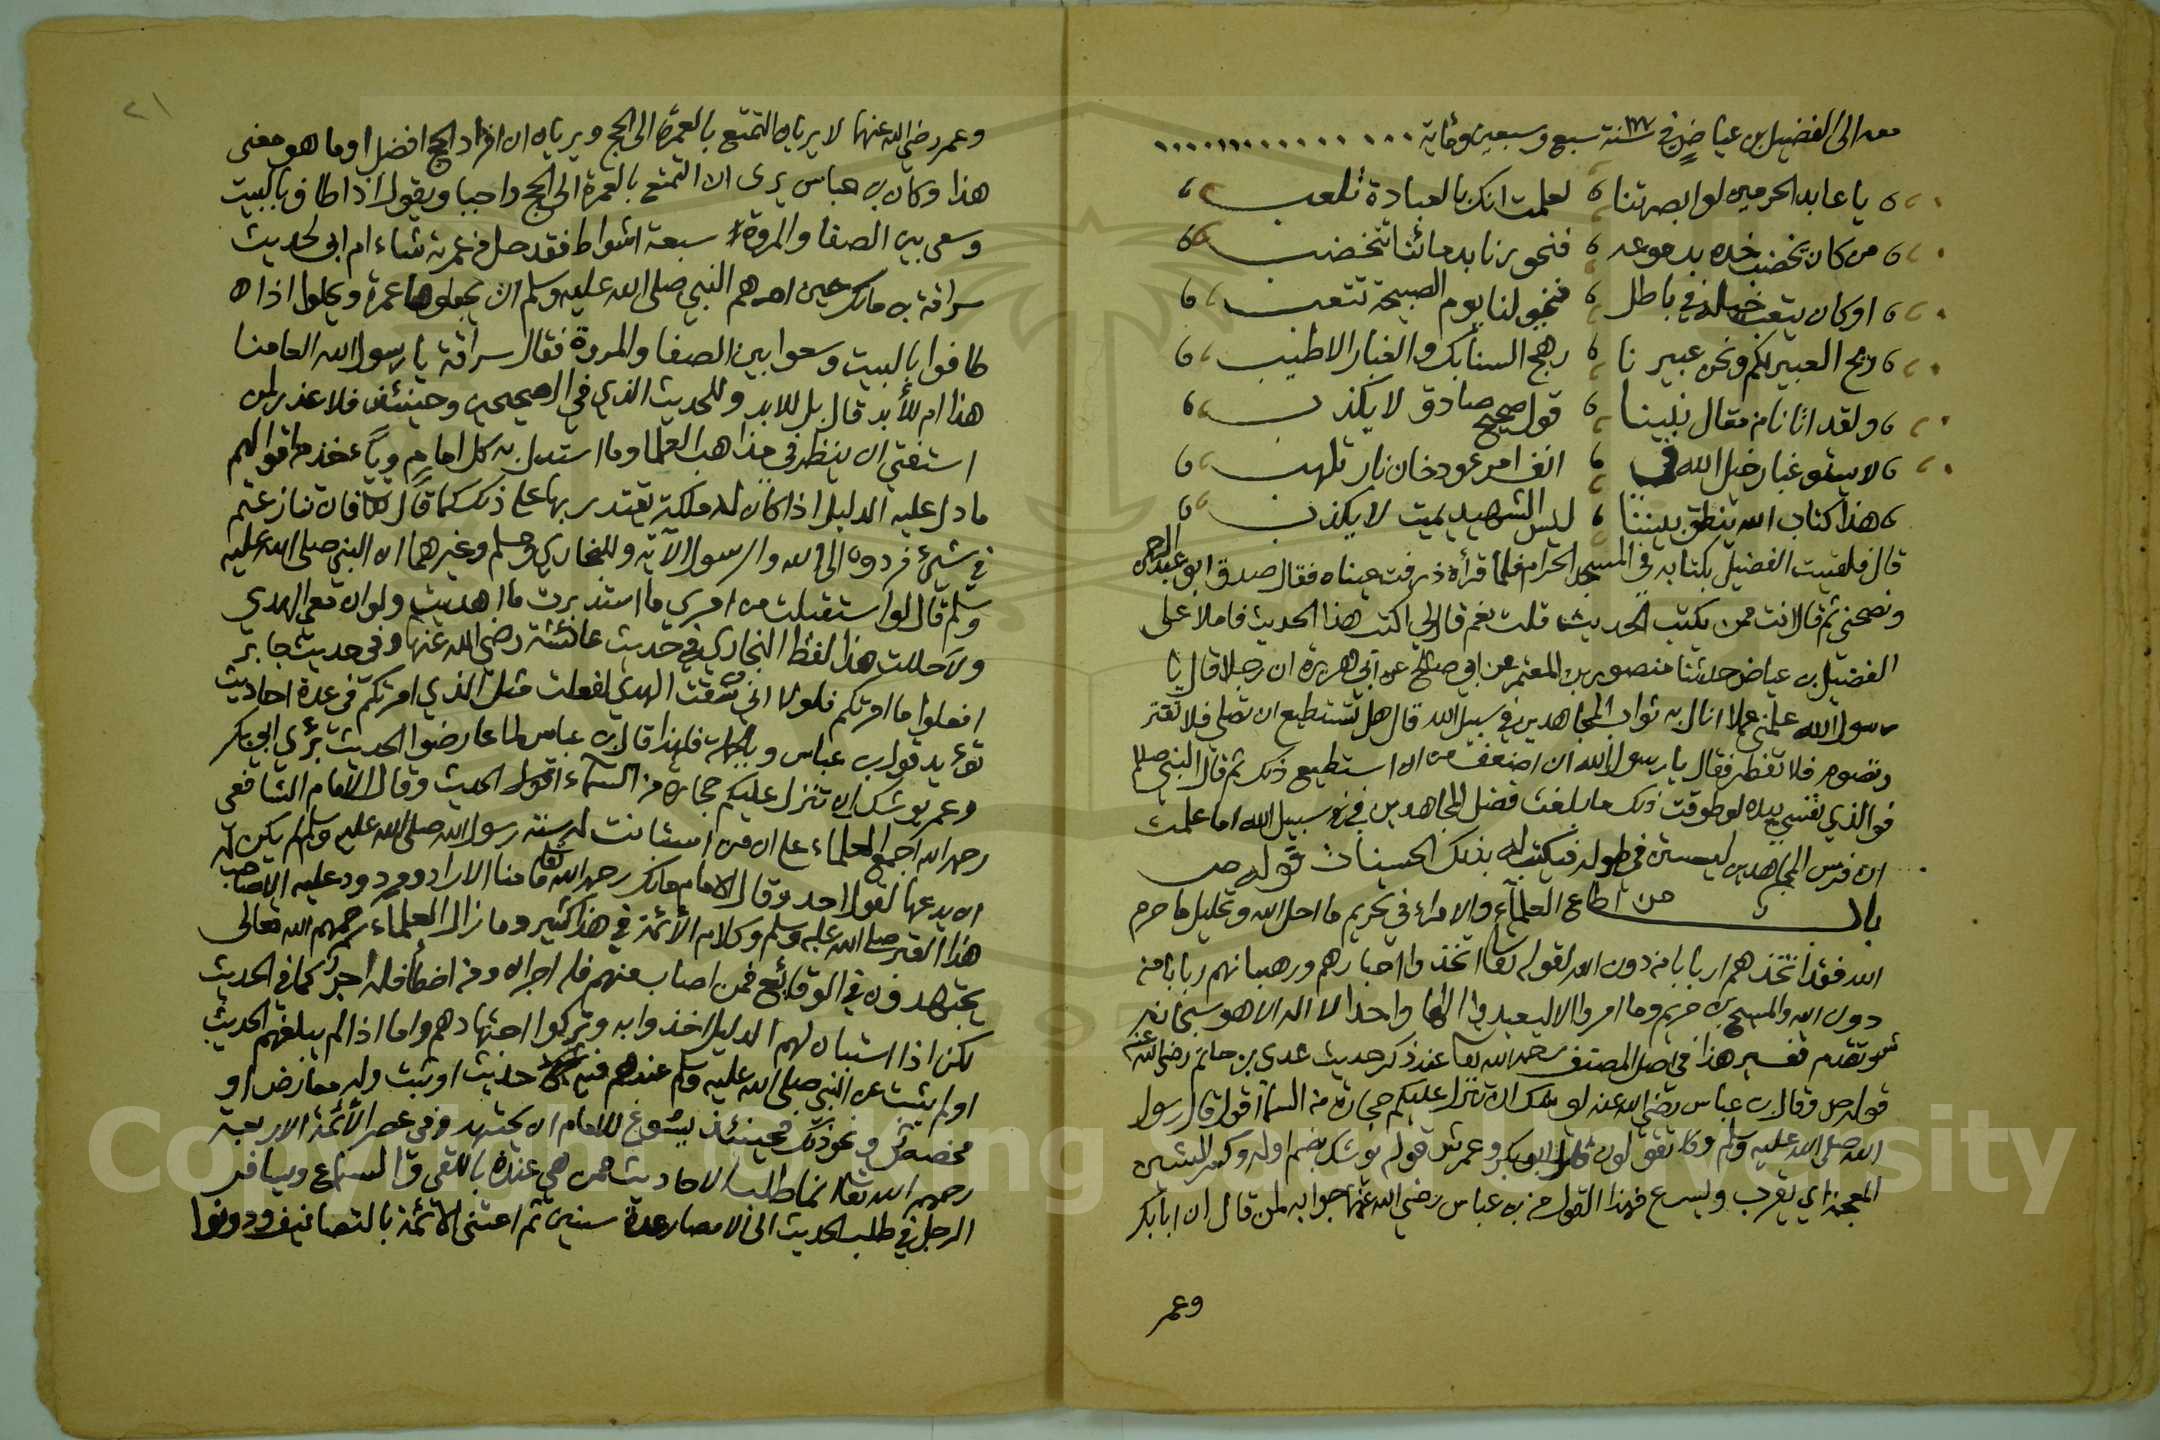 معه الى الفضيل بن عياض في سنة ١٧٧ سبع وسبعين ومائة
يا عابد الحرمين لو ابصرتنا لعلمت انك بالعبادة تلعب
من كان يخضب خده بدموعه فنحورنا بدمائنا تتخضب
او كان يتعب خيله في باطل فخيولنا يوم الصبيحة تتعب
ريح العبير لكم ونحن عبيرنا رهج السنابك والغبار الاطيب
ولقد اتانا من مقال نبينا قول صحيح صادق لا يكذب
لا يستوي غبار خيل الله في انف امرء ودخان نار تلهب
هذا كتاب الله ينطق بيننا ليس الشهيد بميت لا يكذب
قال فلقيت الفضيل بكتابه في المسجد الحرام فلما قرأه ذرفت عيناه فقال صدق ابو عبد الرحمن
ونصحني ثم قال انت ممن يكتب الحديث قلت نعم قال لي اكتب هذا الحديث فاملا على
الفضيل بن عياض حدثنا منصور بن المعتمر عن ابي صالح عن ابي هريرة ان رجلا قال يا
رسول الله علمني عملا انال به ثواب المجاهدين في سبيل الله قال هل تستطيع ان تصلي فلا تفتر
وتصوم فلا تفطر فقال يا رسول الله انا اضعف من ان استطيع ذلك ثم قال النبي صلم
فوالذي نفسي بيده لو طوقت ذلك ما بلغت فضل المجاهدين في سبيل الله اما علمت
ان فرس المجاهد ليستن في طوله فيكتب له بذلك الحسنات قوله ص
باب من اطاع العلماء والامراء في تحريم ما احل الله وتحليل ما حرم
الله فقد اتخذهم اربابا من دون الله لقوله تعا اتخذوا احبارهم ورهبانهم اربابا من
دون الله والمسيح بن مريم وما امروا الا ليعبدوا الها واحدا لا اله الا هو سبحانه
ش وتقدم تفسير هذا في اصل المصنف رحمه الله تعا عند ذكر حديث عدي بن حاتم رضي الله عنه
قوله ص وقال بن عباس رضي الله عنه يوشك ان تنزل عليكم حجارة من السما اقول قال رسول
الله صلى الله عليه وسلم وتقولون قال ابو بكر وعمر ش قوله يوشك بضم اوله وكسر الشين
المعجمة اي يقرب ويسرع فهذا القول من بن عباس رضي الله عنهما جوابه لمن قال ان ابا بكر
وعمر
٢١
وعمر رضي الله عنهما لا يريان التمتع بالعمرة الى الحج ويريان ان افراد الحج افضل او ما هو معنى
هذا وكان بن عباس يرى ان التمتع بالعمرة الى الحج واجبا ويقول اذا طاف بالبيت
وسعى بين الصفا والمروة سبعة اشواط فقد حل من عمرته شاء ام ابى لحديث
سراقة بن مالك حين امرهم النبي صلى الله عليه وسلم ان يجعلوها عمرة ويحلوا اذا
طافوا بالبيت وسعوا بين الصفا والمروة فقال سراقة يا رسول الله العامنا
هذا ام للأبد قال بل للابد وللحديث الذي في الصحيحين وحينئذ فلا عذر لمن
استفتي ان ينظر في مذاهب العلما وما استدل به كل امام وياخذ من اقوالهم
ما دل عليه الدليل اذا كان له ملكة يقتدر بها على ذلك كما قال تعا فان تنازعتم
في شيء فردوه الى الله والرسول الآية وللبخاري ومسلم وغيرهما ان النبي صلى الله عليه
وسلم قال لو استقبلت من امري ما استدبرت ما اهديت ولولا ان معي الهدي
لاحللت هذا لفظ البخاري في حديث عائشة رضي الله عنها وفي حديث جابر
افعلوا ما امرتكم فلولا اني سقت الهدي لفعلت مثل الذي امرتكم في عدة احاديث
تؤيد قول بن عباس وبالجملة فلهذا قال بن عباس لما عارضوا الحديث برأي ابي بكر
وعمر يوشك ان تنزل عليكم حجارة من السماء اقول الحديث وقال الامام الشافعي
رحمه الله اجمع العلماء على ان من استبانت له سنة رسول الله صلى الله عليه وسلم لم يكن له
ان يدعها لقول احد وقال الامام مالك رحمه الله تعا ما منا الا راد ومردود عليه الا صاحب
هذا القبر صلى الله عليه وسلم وكلام الأئمة في هذا كثير وما زال العلماء رحمهم الله تعالى
يجتهدون في الوقائع فمن اصاب منهم فله اجران ومن اخطأ فله اجر كما في الحديث
لكن اذا استبان لهم الدليل اخذوا به وتركوا اجتهادهم واما اذا لم يبلغهم الحديث
او لم يثبت عن النبي صلى الله عليه وسلم عندهم فيه حديث او ثبت وله معارض او
مخصص ونحو ذلك فحينئذ يسوغ للامام ان يجتهد وفي عصر الأئمة الاربعة
رحمهم الله تعالى انما طلب الاحاديث ممن هي عنده باللقى والسماع ويسافر
الرجل في طلب الحديث الى الامصار عدة سنين ثم اعتنى الائمة بالتصانيف ودونوا
Copyright © King Saud University